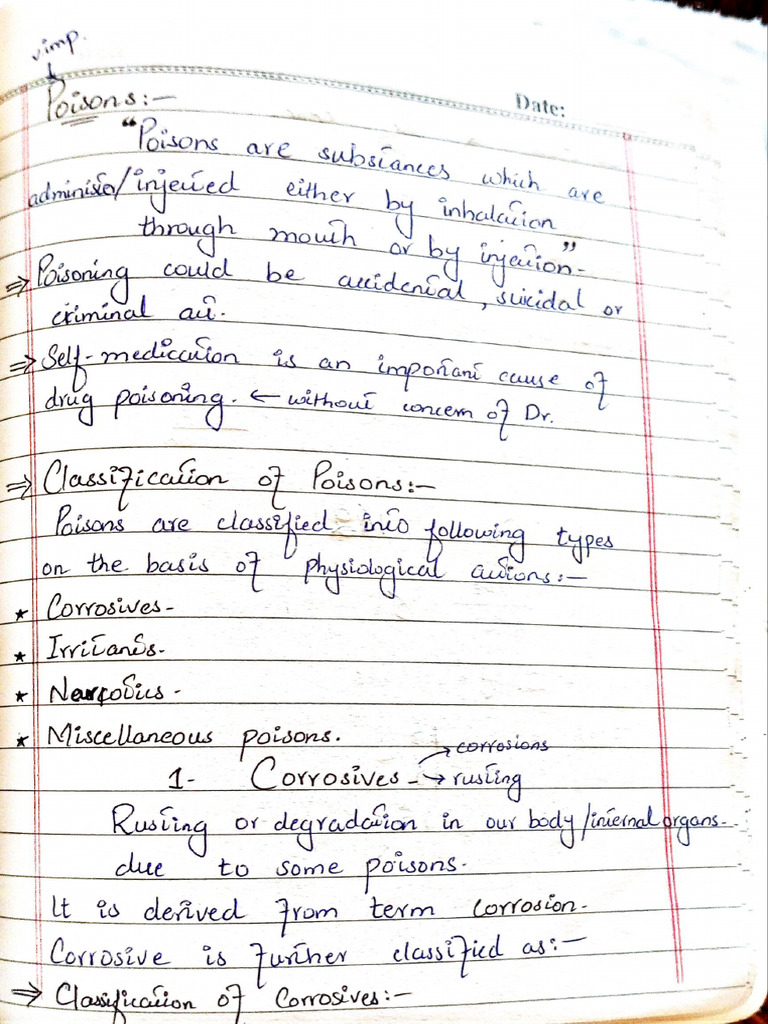 v.imp.
Date:
Poisons:-
"Poisons are substances which are
administer/injected either by inhalation
through mouth or by injection"-
⇒ Poisoning could be accidental, suicidal or
criminal act.
⇒ Self-medication is an important cause of
drug poisoning. ← without concern of Dr.
⇒ Classification of Poisons:-
Poisons are classified into following types
on the basis of physiological actions:-
* Corrosives-
* Irritants-
* Narcotics-
* Miscellaneous poisons.
→ corrosions
1- Corrosives- → rusting
Rusting or degradation in our body/internal organs-
due to some poisons.
It is derived from term corrosion-
Corrosive is further classified as:-
⇒ Classification of Corrosives:-